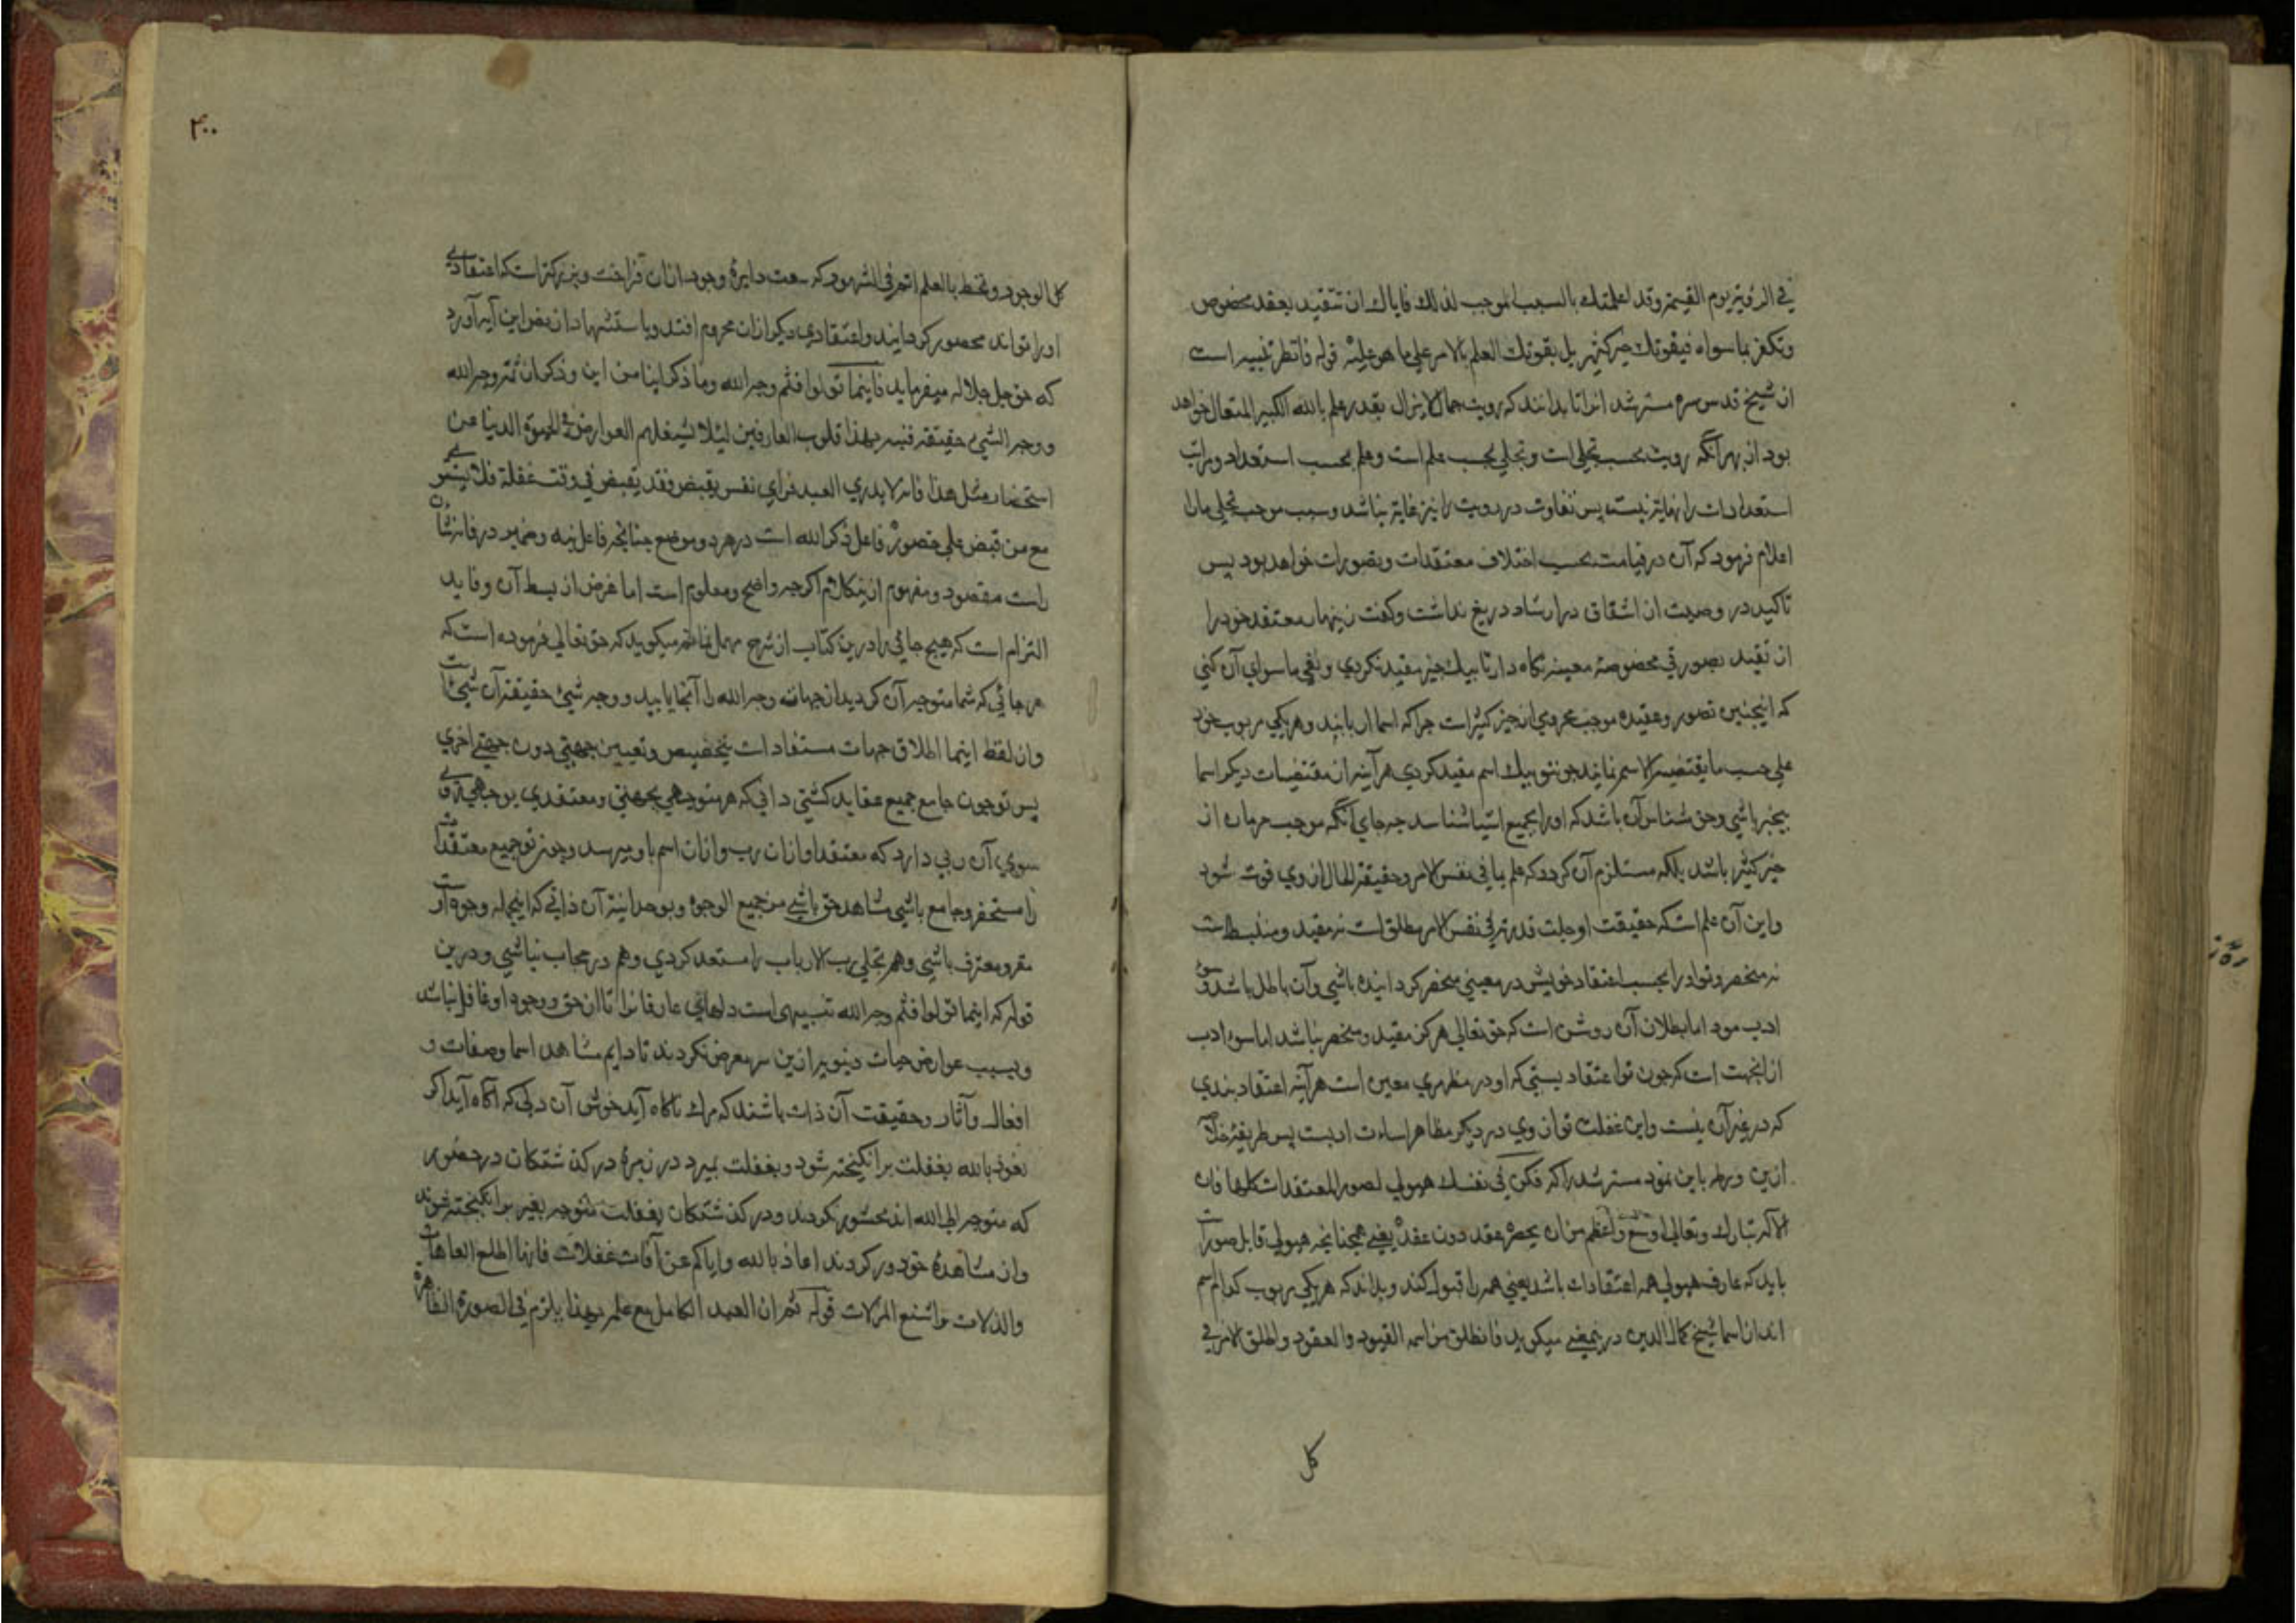 في الرؤية يوم القيمة وقد اعلمتك بالسبب الموجب لذلك فاياك ان تتقيد بعقد مخصوص
وتكفر بما سواه فيفوتك خير كثير بل يفوتك العلم بالامر علي ما هو عليه قوله فانظر تنبيه است
از شيخ قدس سره مسترشد انرا تا بدانند كه رويت جمال لايزال بقدر علم بالله الكبير المتعال خواهد
بود از بهر آنكه رويت بحسب تجلي است و تجلي بحسب علم است و علم بحسب استعداد و مراتب
استعدادات را نهايت نيست پس تفاوت در رويت را نيز غايت نباشد و سبب موجب تجلي ما را
اعلام فرمود كه آن در قيامت بحسب اختلاف معتقدات و تصورات خواهد بود پس
تاكيد در وصيت از اشفاق در ارشاد دريغ نداشت و كفت زينهار معتقد خود را
از تقيد بصورتي مخصوصه معينه نكاه دار تا بيك چيز مقيد نكردي و نفي ما سواي آن كني
كه اينچنين تصور و عقيده موجب محرومي از خير كثير است چرا كه اسما اربابند و هر يكي مربوب خود
علي حسب ما يقتضيه الاسم نمايند چون تو بيك اسم مقيد كردي هر آينه از مقتضيات ديكر اسما
بيخبر باشي و حق شناس آن باشد كه او را بجميع اشيا شناسد چه جاي آنكه موجب حرمان از
خير كثير باشد بلكه مستلزم آن كردد كه علم بما في نفس الامر و حقيقة الحال از وي فوت شود
و اين آن علم است كه حقيقت او جلت قدرته في نفس الامر مطلق است نه مقيد و منبسط است
نه منحصر و تو او را بحسب اعتقاد خويش در معيني منحصر كردانيده باشي و آن باطل باشد و سوء
ادب بود اما بطلان آن روشن است كه حق تعالي هركز مقيد و منحصر نباشد اما سوء ادب
از انجهت است كه چون تو اعتقاد بستي كه او در مظهري معين است هر آينه اعتقاد بندي
كه در غير آن نيست و اين غفلت تو از وي در ديكر مظاهر اساءت ادبست پس طريقه خلاص
ازين ورطه باين نمود مسترشد را كه فكن في نفسك هيولي لصور المعتقدات كلها فان
الاله تبارك و تعالي اوسع و اعظم من ان يحصره عقد دون عقد يعني همچنانچه هيولي قابل صور است
بايد كه عارف هيولي همه اعتقادات باشد يعني همه را قبول كند و بداند كه هر يكي مربوب كدام اسم
اند از اسما شيخ كمال الدين درينمعني ميكويد فانطلق من اسر القيود والعقود واطلق الامر في
كل
۴۰۰
كل الوجود و تحط بالعلم الاتم في الشهود كه سعت دايره وجود ازان فراختر و بزركتر است كه اعتقادي
او را تواند محصور كردانيد و اعتقادي ديكر ازان محروم افتد و باستشهاد از بعض اين آيه آورد
كه حق جل جلاله ميفرمايد فاينما تولوا فثم وجه الله وما ذكر اينا من اين وذكر ان ثمه وجه الله
ووجه الشيء حقيقته فنبه بهذا قلوب العارفين لئلا تشغلهم العوارض في الحيوة الدنيا عن
استحضار مثل هذا فانه لا يدري العبد في اي نفس يقبض فقد يقبض في وقت غفلة فلا يستوي
مع من قبض علي حضور فاعل ذكر الله است در هر دو موضع چنانچه فاعل نبه و ضمير در فانه شأن
راست مقصود و مفهوم ازين كلام اكر چه واضح و معلوم است اما غرض از بسط آن و فايد
التزام است كه هيچ جائي را درين كتاب از شرح مهمل نماند ميكويد كه حق تعالي فرموده است كه
هر جائي كه شما متوجه آن كرديد از جهات وجه الله را آنجا يابيد و وجه شيئ حقيقت آن شيئ است
و از لفظ اينما اطلاق جهات مستفاد است بي تخصيص و تعيين جهتي دون جهتي اخري
پس تو چون جامع جميع عقايد كشتي داني كه هر متوجهي بجهتي و معتقدي بوجهي روي
سوي آن ربي دارد كه معتقد او ازان رب و ازان اسم باو ميرسد و چون تو جميع معتقدات
را مستحضر و جامع باشي مشاهد حق باشي من جميع الوجوه و بوحدانيت آن ذاتي كه اينجمله وجوه اوست
مقر و معترف باشي و هم تجلي رب الارباب را مستعد كردي و هم در حجاب نباشي و درين
قوله كه اينما تولوا فثم وجه الله تنبيهي است دلهائي عارفانرا تا از حق و وجود او غافل نباشند
و بسبب عوارض حيات دنيويه ازين سر معرض نكردند تا دايم مشاهد اسما و صفات و
افعال و آثار و حقيقت آن ذات باشند كه مرك ناكاه آيد خوش آن دلي كه آكاه آيد اكر
نعوذ بالله بغفلت برانكيخته شود و بغفلت بميرد در زمره دركذشتكان در حضور
كه متوجه الي الله اند محشور نكردند و دركذشتكان بغفلت متوجه بغير برانكيخته شوند
و از مشاهده خود دور كردند اعاذنا الله واياكم عن آفات غفلات فانها اطلع العاهات
والذلات واشنع المزلات قوله ثم ان العبد الكامل مع علمه بهذا يلزم في الصورة الظاهرة